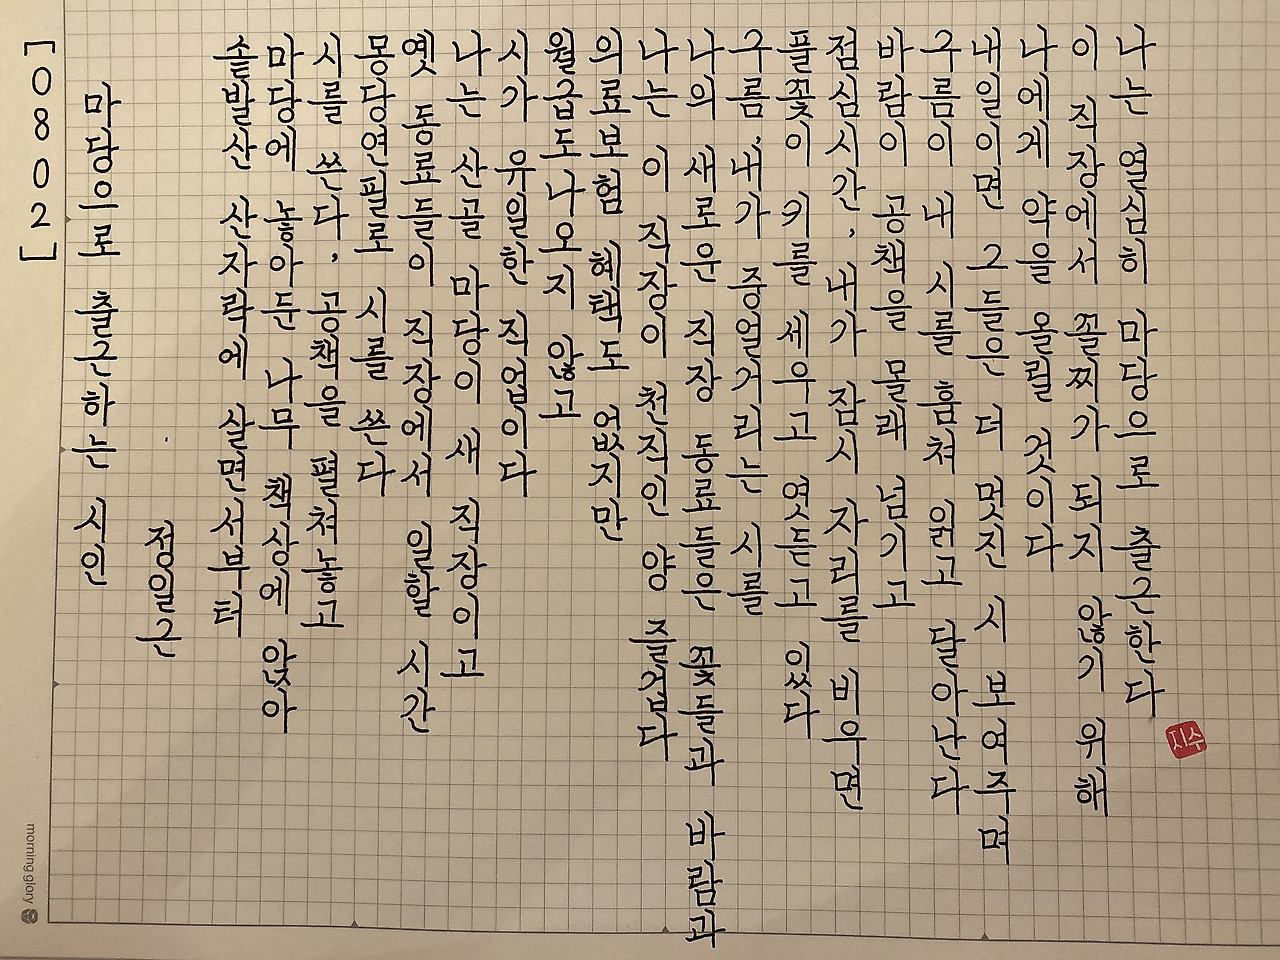 [0802]
마당으로 출근하는 시인
정일근
솔발산 산자락에 살면서부터
마당에 놓아둔 나무 책상에 앉아
시를 쓴다, 공책을 펼쳐놓고
몽당연필로 시를 쓴다
옛 동료들이 직장에서 일할 시간
나는 산골 마당이 새 직장이고
시가 유일한 직업이다
월급도 나오지 않고
의료보험 혜택도 없지만
나는 이 직장이 천직인 양 즐겁다
나의 새로운 직장 동료들은 꽃들과 바람과
구름, 내가 중얼거리는 시를
풀꽃이 키를 세우고 엿듣고 있다
점심시간, 내가 잠시 자리를 비우면
바람이 공책을 몰래 넘기고
구름이 내 시를 훔쳐 읽고 달아난다
내일이면 그들은 더 멋진 시 보여주며
나에게 약을 올릴 것이다
이 직장에서 꼴찌가 되지 않기 위해
나는 열심히 마당으로 출근한다
지수
morning glory